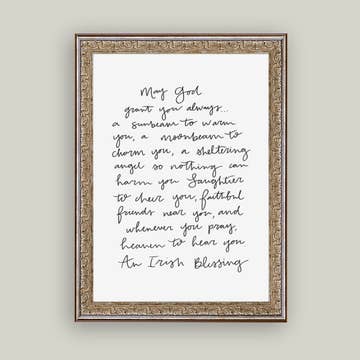 May God
grant you always...
a sunbeam to warm
you, a moonbeam to
charm you, a sheltering
angel so nothing can
harm you Laughter
to cheer you, faithful
friends near you, and
whenever you pray,
heaven to hear you
An Irish Blessing